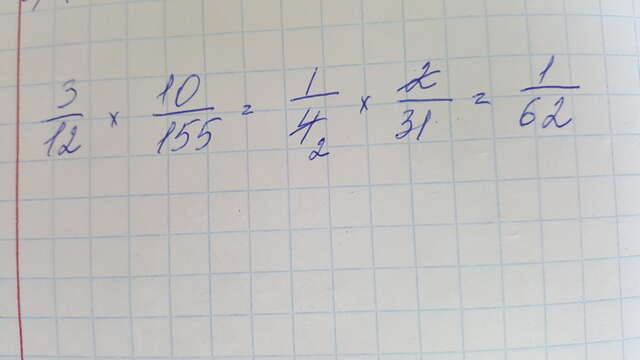 3/12 × 10/155 = 1/4 2 × 2/31 = 1/62